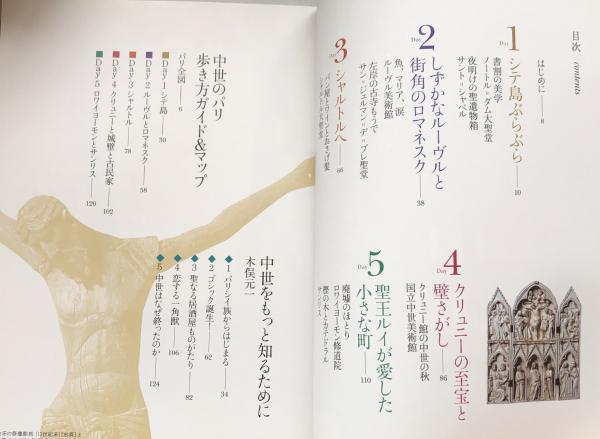 目次 contents
はじめに 8
Day 1 シテ島ぶらぶら 10
書割の美学
ノートル=ダム大聖堂
夜明けの聖遺物箱
サント=シャペル
Day 2 しずかなルーヴルと
街角のロマネスク 38
魚、マリア、涙
ルーヴル美術館
左岸の古寺もうで
サン=ジェルマン=デ=プレ聖堂
Day 3 シャルトルへ 66
パン屋とワインとおさげ髪
シャルトル大聖堂
Day 4 クリュニーの至宝と
壁さがし 86
クリュニー館の中世の秋
国立中世美術館
Day 5 聖王ルイが愛した
小さな町 110
廃墟のほとり
ロワイヨーモン修道院
樫の木とカテドラル
サンリス
中世のパリ
歩き方ガイド&マップ
パリ全図 6
Day 1 シテ島 30
Day 2 ルーヴルとロマネスク 58
Day 3 シャルトル 78
Day 4 クリュニーと城壁と古民家 102
Day 5 ロワイヨーモンとサンリス 120
中世をもっと知るために
木俣元一
1 パリシイ族からはじまる 34
2 ゴシック誕生 62
3 聖なる居酒屋ものがたり 82
4 恋する一角獣 106
5 中世はなぜ終ったのか 124